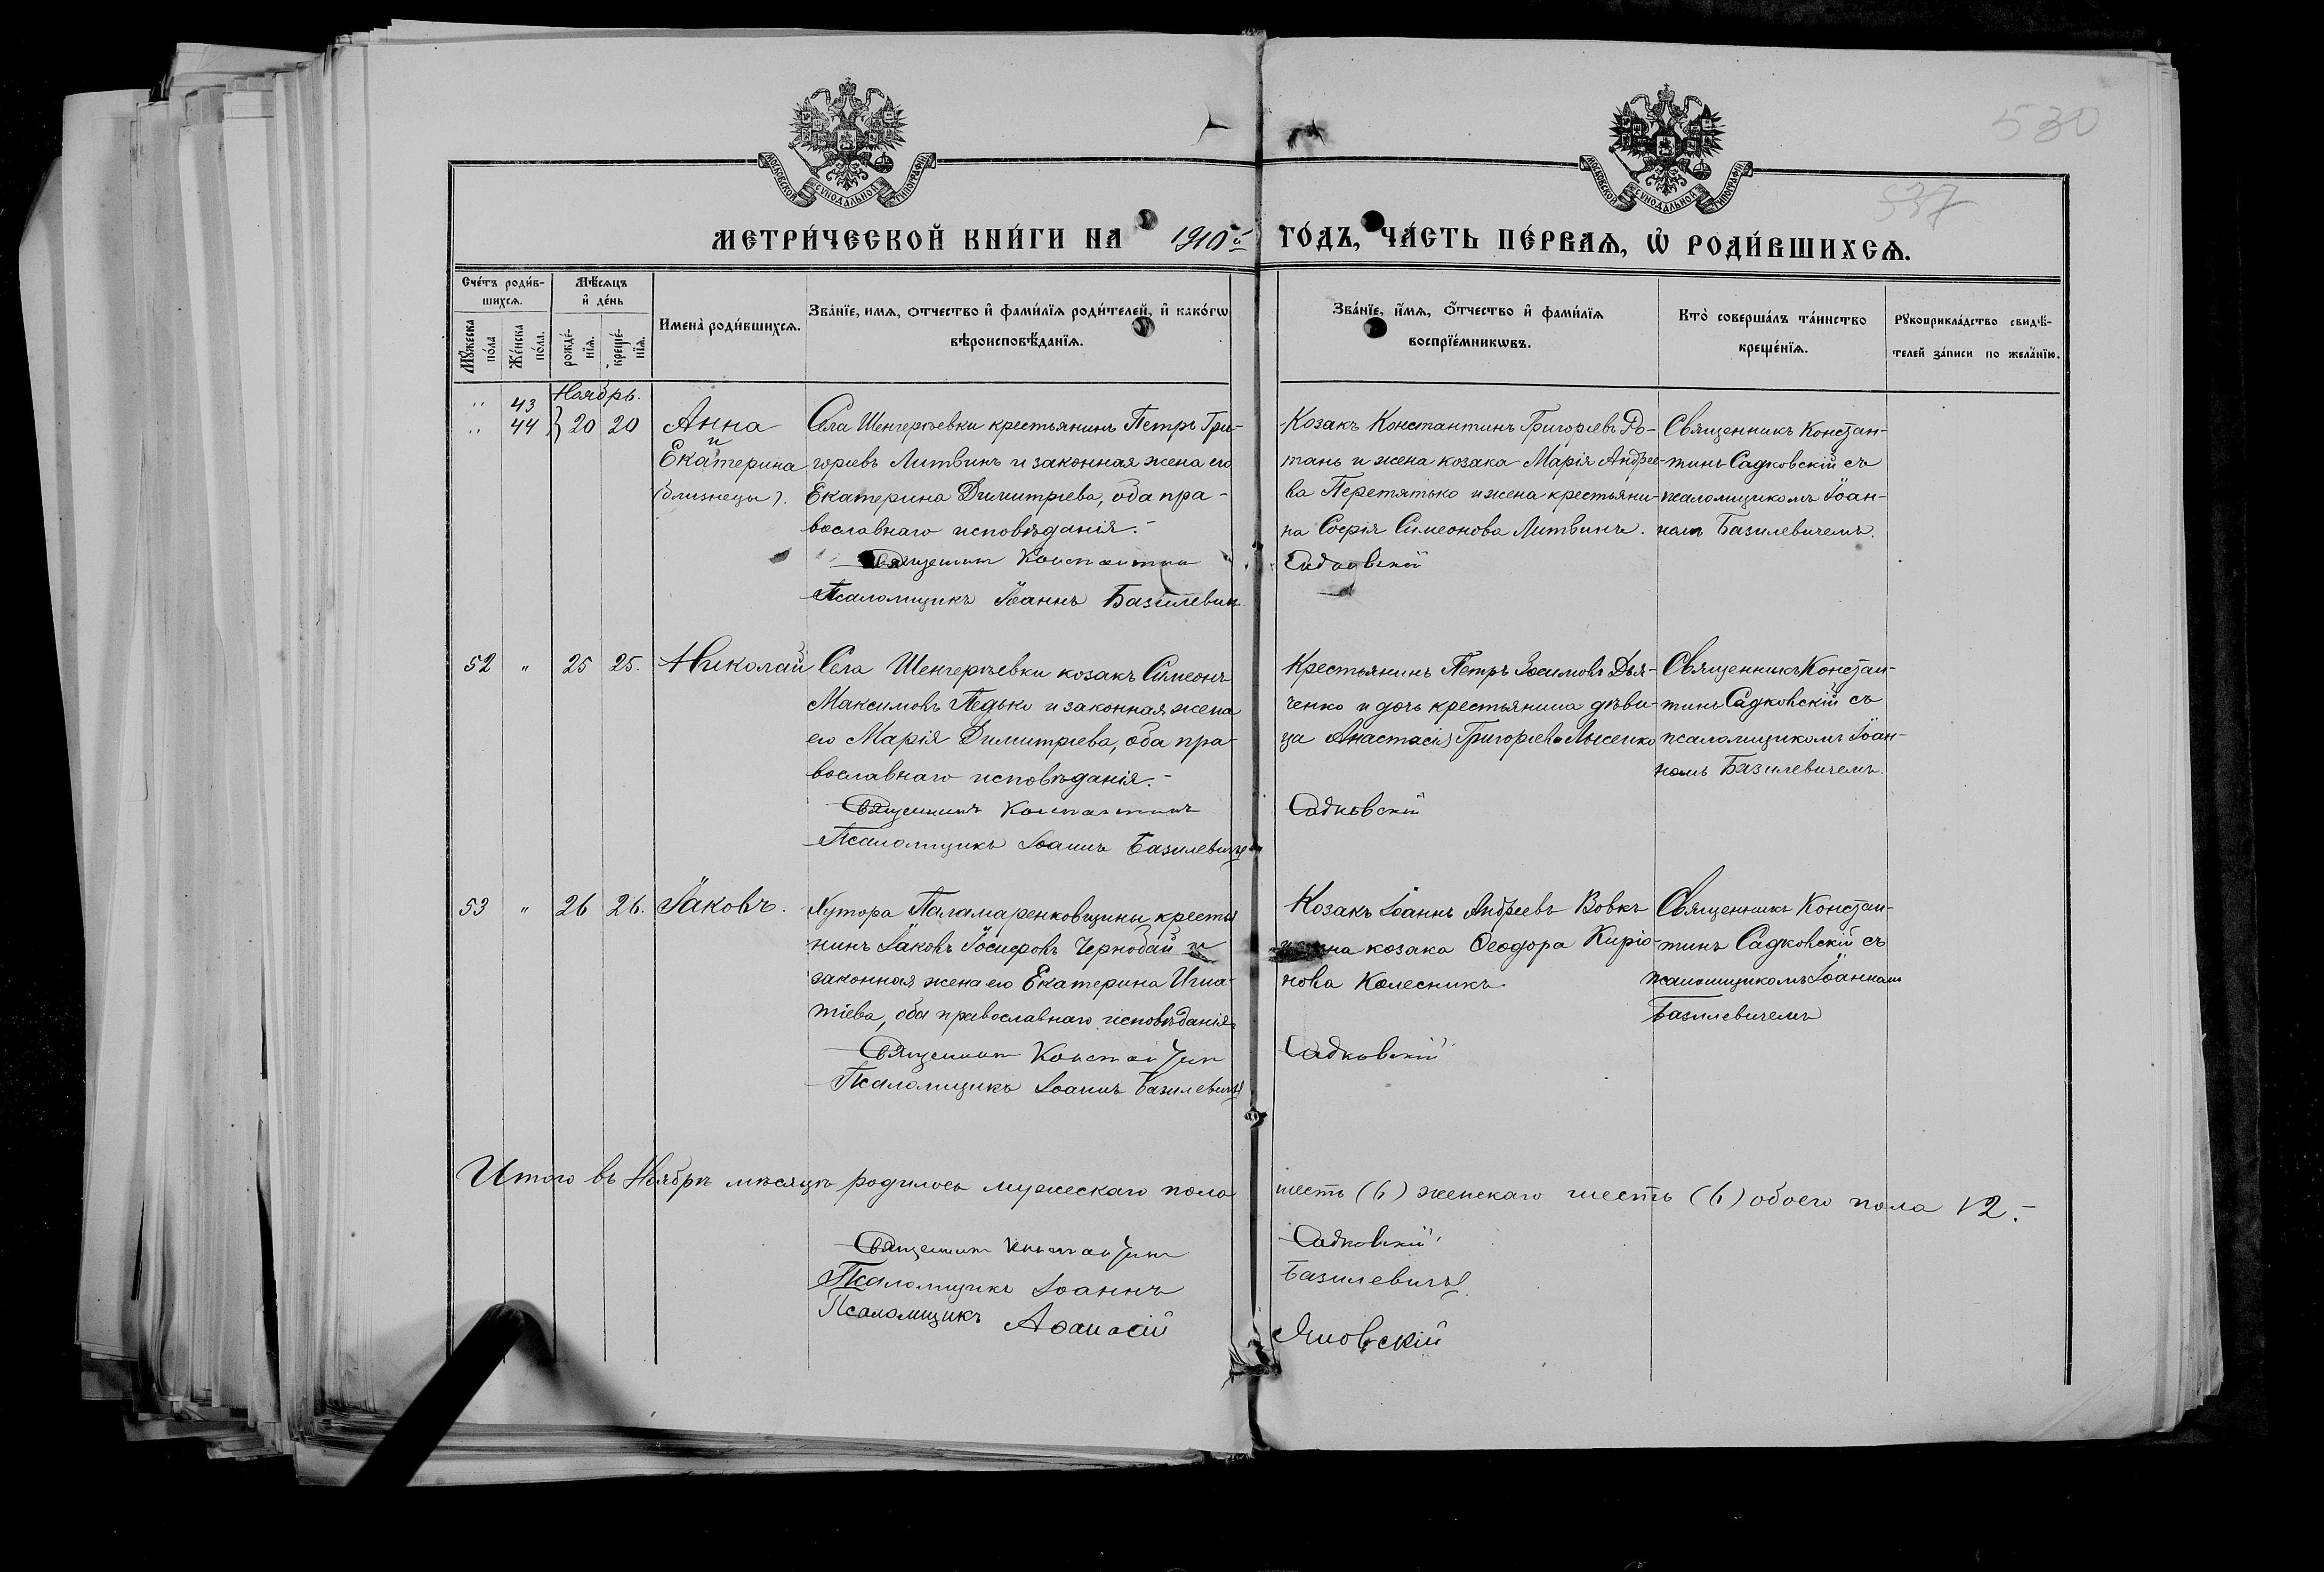 530
537
МОСКОВСКОЙ СѴНОДАЛЬНОЙ ТИПОГРАФІИ
МОСКОВСКОЙ СѴНОДАЛЬНОЙ ТИПОГРАФІИ
МЕТРИ́ЧЕСКОЙ КНИ́ГИ НА 1910й ГО́ДЪ, ЧА́СТЬ ПЕ́РВАѦ, Ѽ РОДИ́ВШИХСѦ.
Сче́тъ роди́в-
шихсѧ.
Мꙋ́жеска по́ла
Же́нска по́ла.
Мѣ́сѧцъ
и҆ де́нь
рожде́-
нїѧ.
креще́-
нїѧ.
Имена̀ роди́вшихсѧ.
Зва́нїе, имѧ, ѻтчество и҆ фами́лїѧ роди́телей, и҆ како́гѡ
вѣроисповѣ́данїѧ.
Зва́нїе, и҆́мѧ, ѻ҆́тчество и҆ фами́лїѧ
воспрїе́мникѡвъ.
Кто̀ соверша́лъ та́инство
креще́нїѧ.
Рꙋкоприкла́дство свидѣ́-
телей за́писи по жела́нїю.
Ноябрь.
" 43
" 44 } 20 20
Анна
и
Екатерина
(близнецы).
Села Шенгеріевки крестьянинъ Петръ Гри-
горіевъ Литвинъ и законная жена его
Екатерина Димитріева, оба пра-
вославнаго исповѣданія.-
Священникъ Константинъ
Псаломщикъ Іоаннъ Базилевичъ
Козакъ Константинъ Григоріевъ Ро-
тань и жена козака Марія Андрее-
ва Перетятько и жена крестьяни-
на Софія Симеонова Литвинъ.
Садковскій
Священникъ Констан-
тинъ Садковскій съ
псаломщикомъ Іоан-
номъ Базилевичемъ.
52 " 25 25. Николай
Села Шенгеріевки козакъ Симеонъ
Максимовъ Педько и законная жена
его Марія Димитріева, оба пра-
вославнаго исповѣданія.-
Священникъ Константинъ
Псаломщикъ Іоаннъ Базилевичъ
Крестьянинъ Петръ Зосимовъ Дья-
ченко и дочь крестьянина дѣви-
ца Анастасія Григоріева Лысенко
Садковскій
Священникъ Констан-
тинъ Садковскій съ
псаломщикомъ Іоан-
номъ Базилевичемъ.
53 " 26 26. Іаковъ.
Хутора Паламаренковщины крестья
нинъ Іаковъ Іосифовъ Чернобай и
законная жена его Екатерина Игна-
тіева, оба православнаго исповѣданія
Священникъ Константинъ
Псаломщикъ Іоаннъ Базилевичъ
Козакъ Іоаннъ Андреевъ Вовкъ
козака Ѳеодора Киріо-
нова Колесникъ.
Садковскій
Священникъ Констан-
тинъ Садковскій съ
псаломщикомъ Іоанномъ
Базилевичемъ
Итого въ Ноябрѣ мѣсяцѣ родилось мужескаго пола шесть (6) женскаго шесть (6) обоего пола 12.-
Священникъ Константинъ Садковскій
Псаломщикъ Іоаннъ Базилевичъ
Псаломщикъ Аѳанасій Яновскій